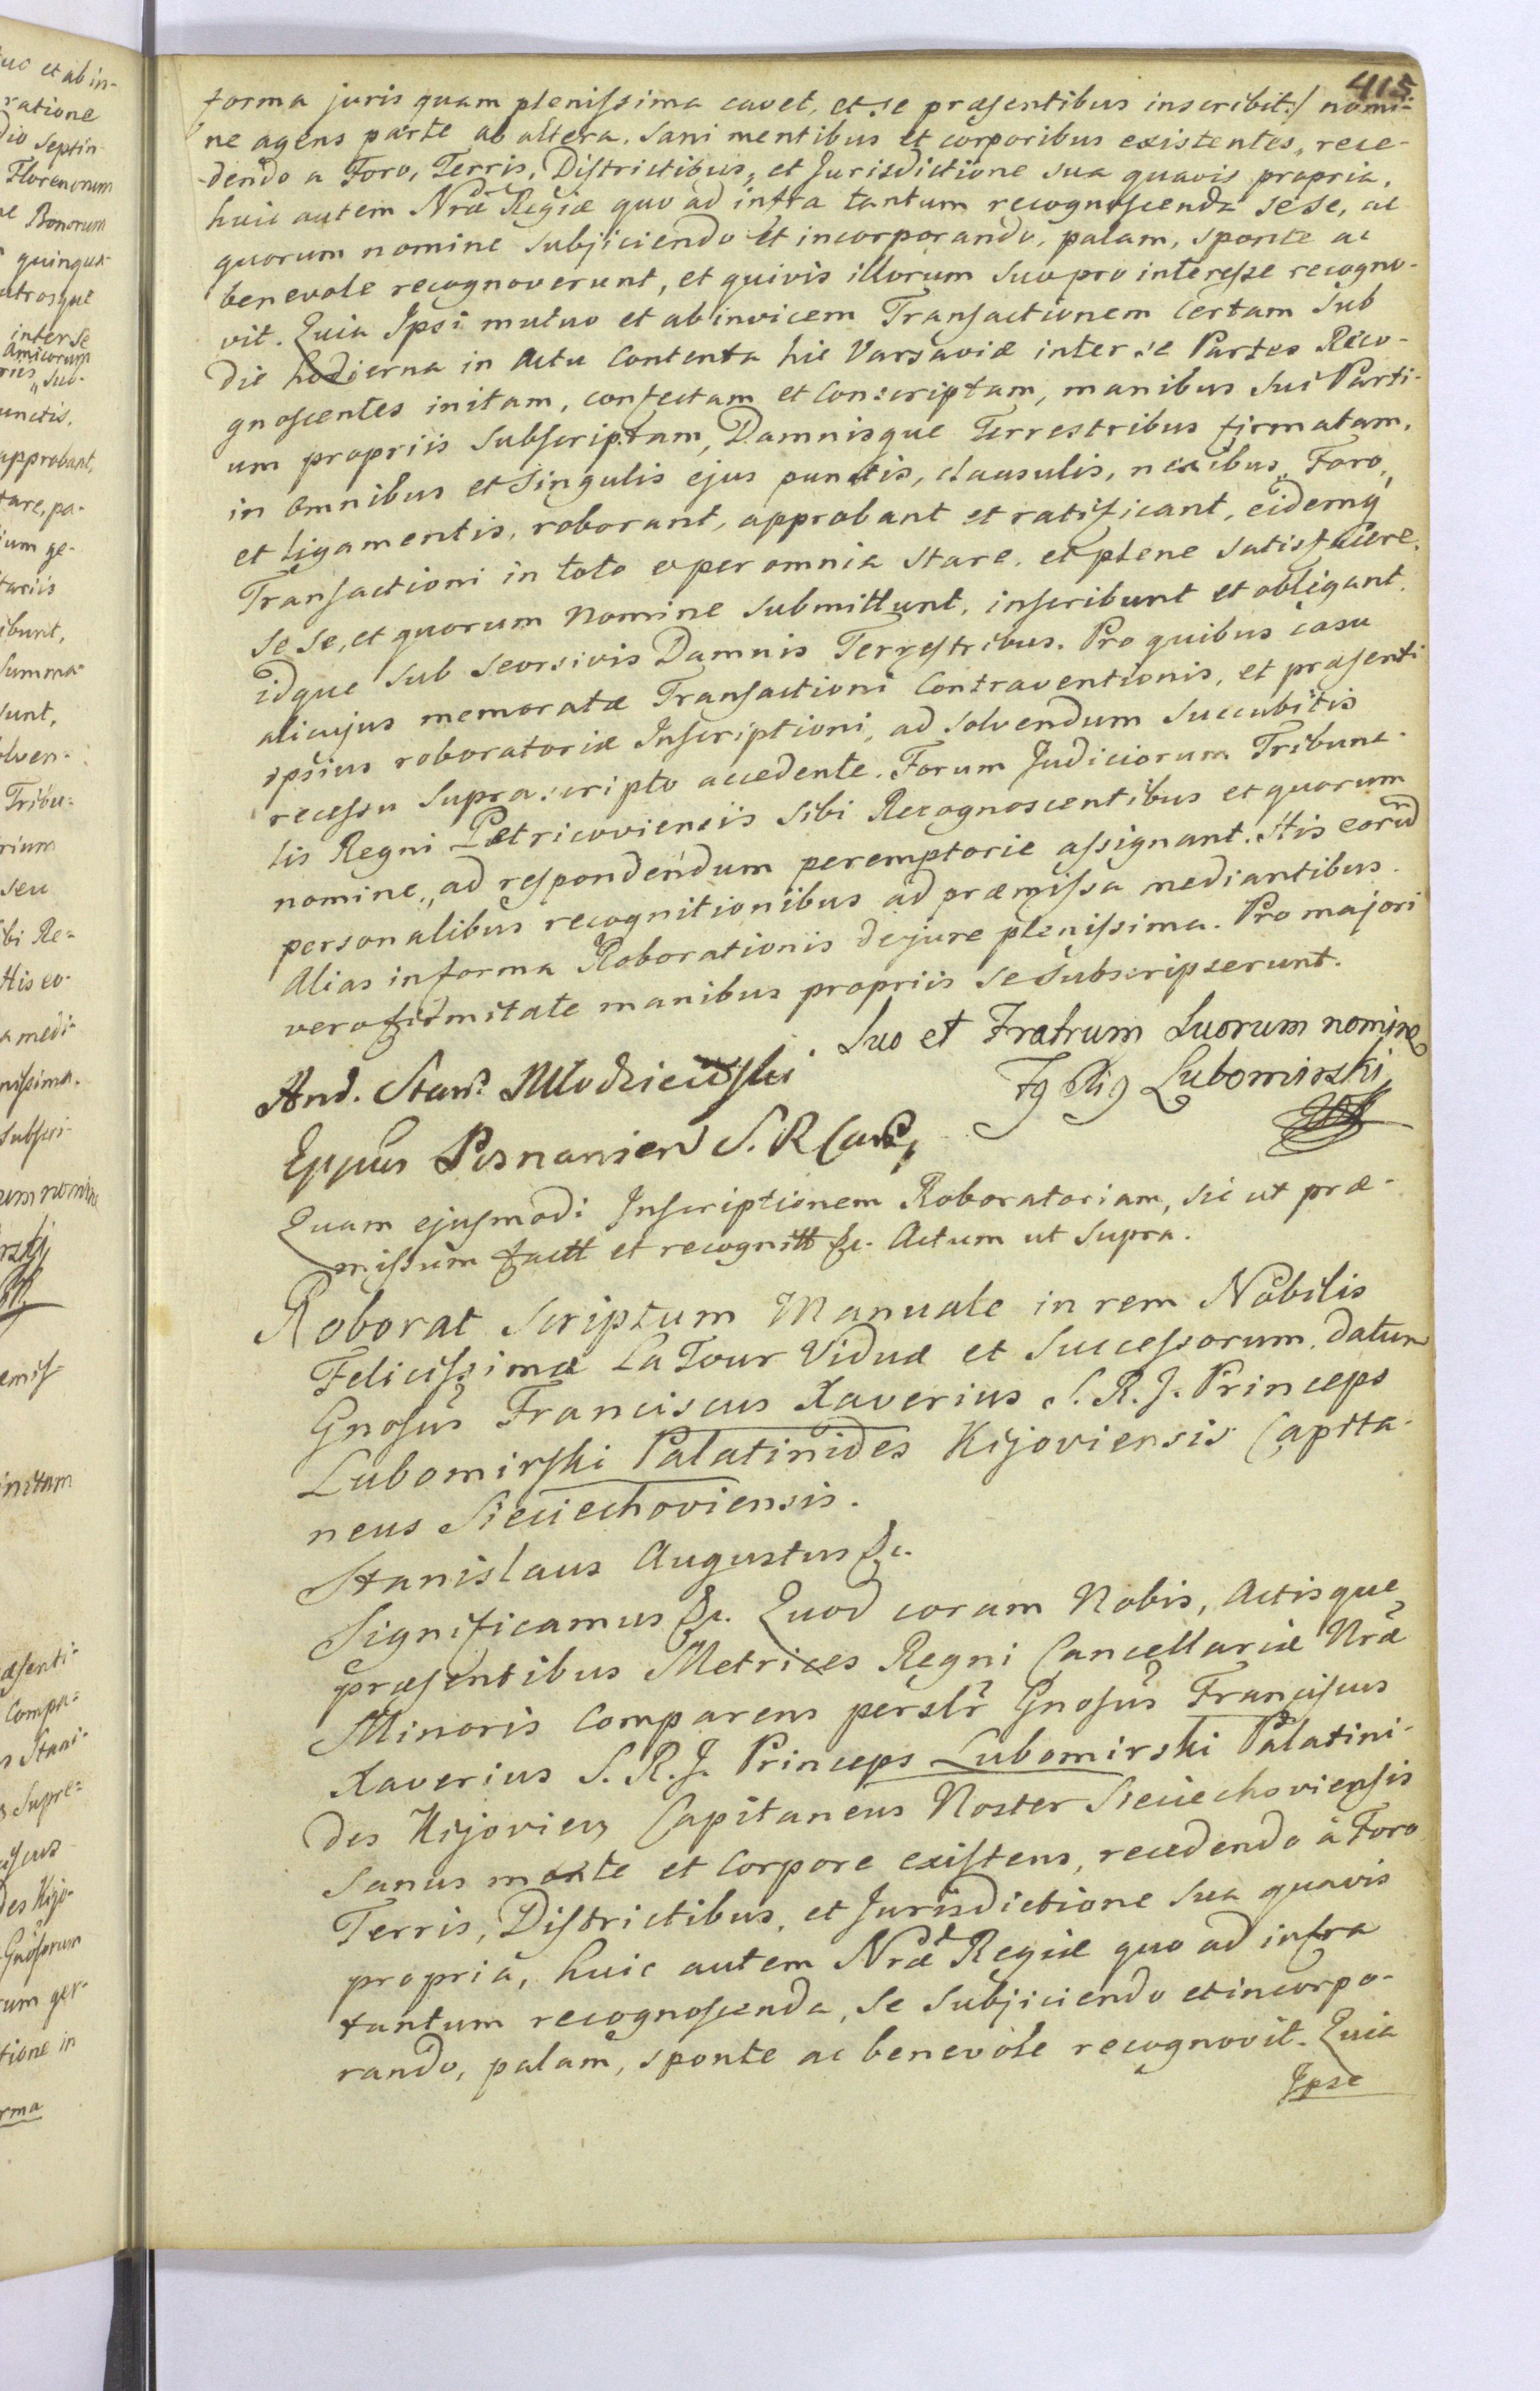 415
forma juris quam plenissima cavet, et se præsentibus inscribit:/ nomi-
ne agens parte ab altera. Sani mentibus et corporibus existentes, rece-
dendo a Foro, Terris, Districtibus, et Jurisdictione sua quavis propria,
huic autem Nræ Regiæ quo ad infra tantum recognoscenda sese, ac
quorum nomine subjiciendo et incorporando, palam, sponte ac
benevole recognoverunt, et quivis illorum suo pro interesse recogno-
vit. Quia Ipsi mutuo et ab invicem Transactionem certam sub
die hodierna in Actu contenta hic Varsaviæ inter se Partes Reco-
gnoscentes initam, confectam et conscriptam, manibus sui Parti-
um propriis subscriptam, Damnisque Terrestribus firmatam,
in omnibus et singulis ejus punctis, clausulis, nexibus, Foro,
et ligamentis, roborant, approbant et ratificant, eidemq
Transactioni in toto et per omnia stare, et plene satisfacere.
se se, et quorum nomine submittunt, inscribunt et obligant.
idque sub seorsivis Damnis Terrestribus. Pro quibus casu
alicujus memoratæ Transactioni Contraventionis, et præsenti
ipsius roboratoriæ Inscriptioni, ad solvendum succubitis
recessu suprascripto accedente. Forum Judiciorum Tribuna-
lis Regni Petricoviensis sibi Recognoscentibus et quorum
nomine, ad respondendum peremptorie assignant. His eorud
personalibus recognitionibus ad præmissa mediantibus.
Alias in forma Roborationis de jure plenissima. Pro majori
vero firmitate manibus propriis se subscripserunt.
And. Stan. Młodziewski Suo et Fratrum Suorum nomine
Eppus Posnanien S. R Canc, Lubomirski
Quam ejusmodi Inscriptionem Roboratoriam, sic ut præ-
missum factt et recognitt &c. Actum ut supra.
Roborat Scriptum Manuale in rem Nobilis
Felicissimæ La Tour Viduæ et Successorum datum
Gnosus Franciscus Xaverius S. R. J. Princeps
Lubomirski Palatinides Kijoviensis Capita-
neus Sieciechoviensis.
Stanislaus Augustus &c.
Significamus &c. Quod coram Nobis, Actisque
præsentibus Metrices Regni Cancellariæ Nræ
Minoris Comparens perslr Gnosus Franciscus
Xaverius S. R. J. Princeps Lubomirski Palatini-
des Kijovien Capitaneus Noster Sieciechoviensis
Sanus mente et corpore existens, recedendo à Foro
Terris, Districtibus, et Jurisdictione sua quavis
propria, huic autem Nræ Regiæ quo ad infra
tantum recognoscenda, se subjiciendo et incorpo-
rando, palam, sponte ac benevole recognovit. Quia
Ipse